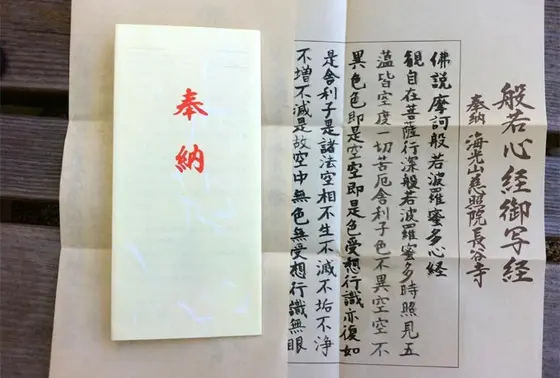 般若心経御写経
奉納 海光山慈照院長谷寺
佛説摩訶般若波羅蜜多心経
観自在菩薩行深般若波羅蜜多時照見五
蘊皆空度一切苦厄舎利子色不異空空不
異色色即是空空即是色受想行識亦復如
是舎利子是諸法空相不生不滅不垢不浄
不増不減是故空中無色無受想行識無眼
奉納